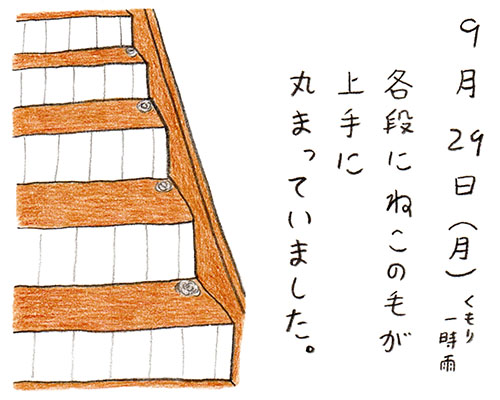 9月29日（月）くもり
一時雨
各段にねこの毛が
上手に
丸まっていました。